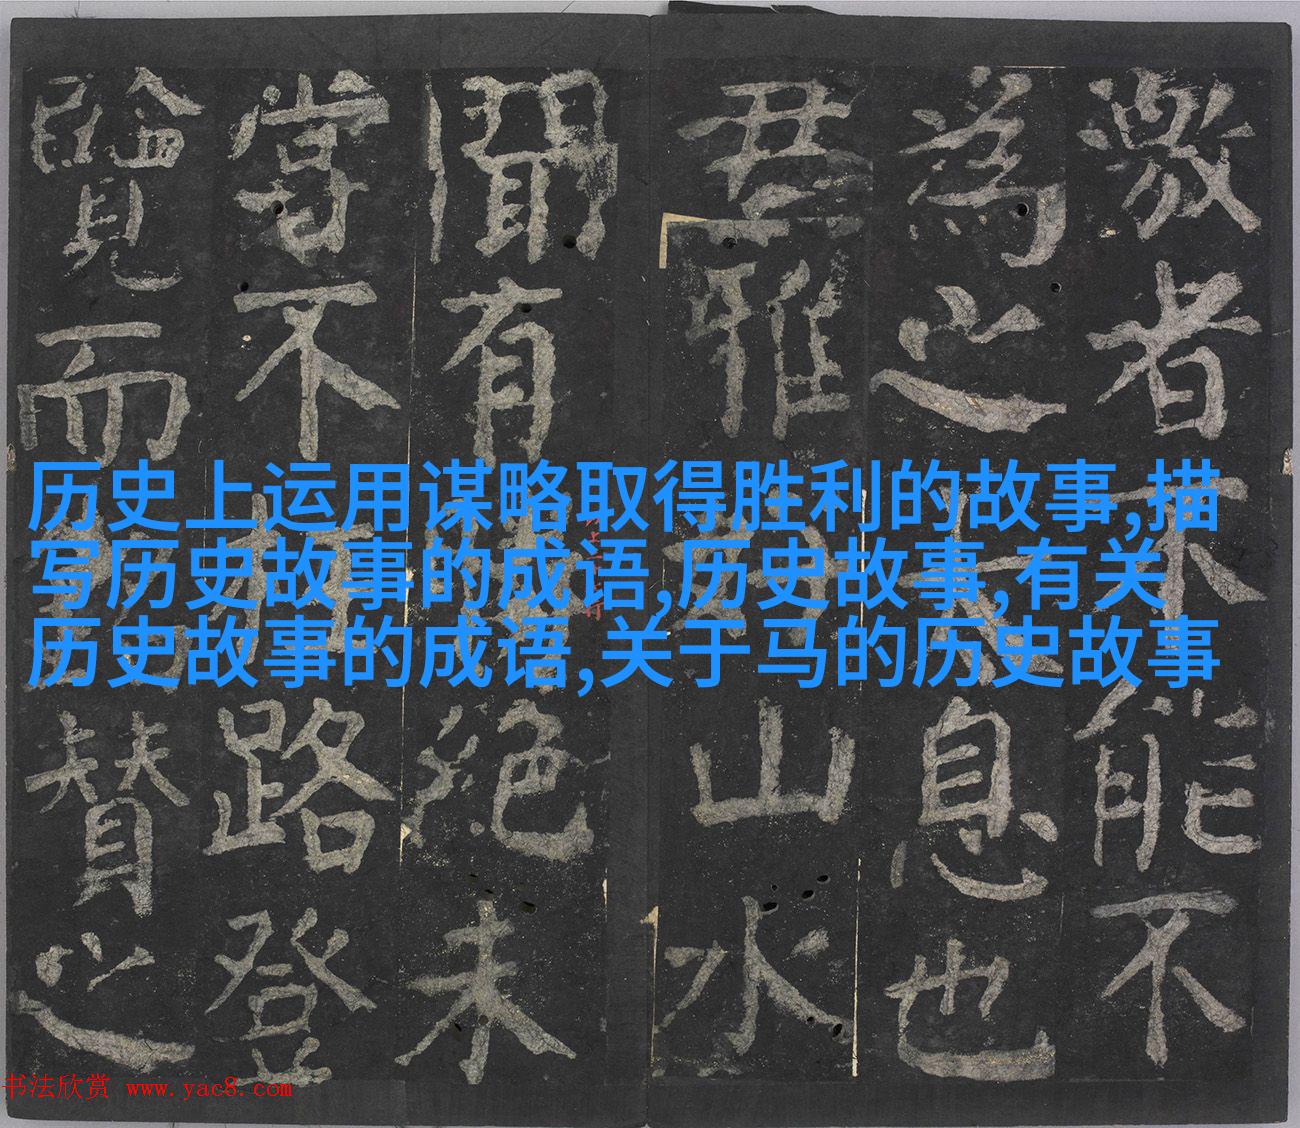 历史上运用谋略取得胜利的故事,描
写历史故事的成语,历史故事,有关
历史故事的成语,关于马的历史故事
激者不能不
為之息也
君雅山水
聞有絕未
嘗不路登
覽而贊之
书法欣赏 www.yac8.com